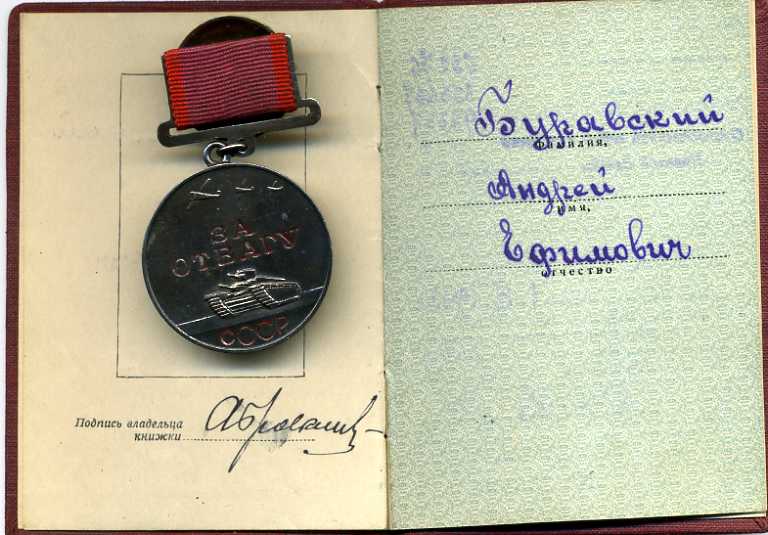 ЗА
ОТВАГУ
СССР
Подпись владельца
книжки
Буравский
фамилия,
Андрей
имя,
Ефимович
отчество